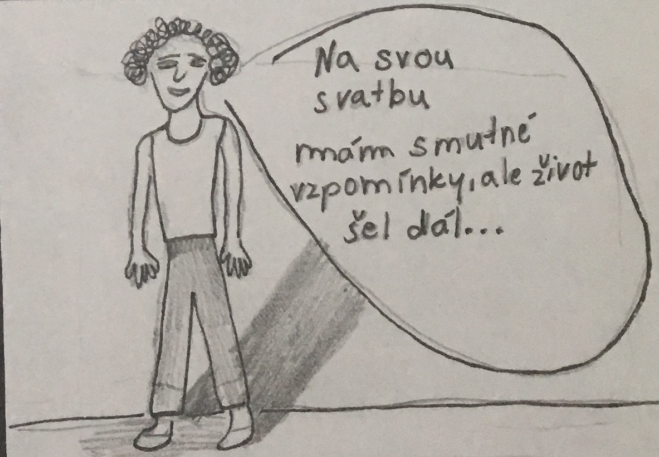 Na svou
svatbu
mám smutné
vzpomínky, ale život
šel dál...